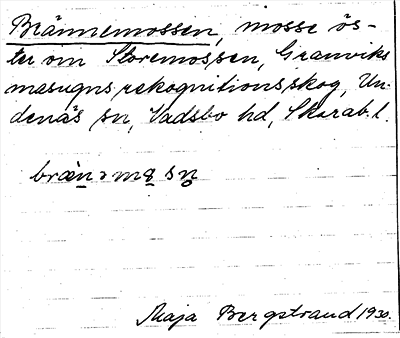 Brännemossen, mosse ös-
ter om Storemossen, Granviks
masugns rekognitionsskog, Un-
denäs sn, Vadsbo hd, Skarab. l.
Maja Bergstrand 1930.